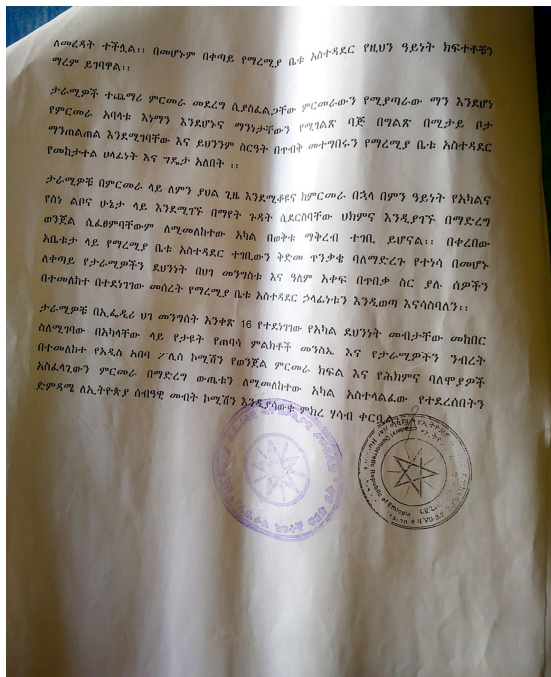 ለመረዳት ተችሏል፡፡ በመሆኑም በቀጣይ የማረሚያ ቤቱ አስተዳደር የዚህን ዓይነት ክፍተቶቹን
ማረም ይገባዋል፡፡
ታራሚዎች ተጨማሪ ምርመራ መደረግ ሲያስፈልጋቸው ምርመራውን የሚያጣራው ማን እንደሆነ
የምርመራ አባላቱ እነማን እንደሆኑና ማንነታቸውን የሚገልጽ ባጅ በግልጽ በሚታይ ቦታ
ማንጠልጠል እንደሚገባቸው እና ይህንንም ስርዓት በጥብቅ መተግበሩን የማረሚያ ቤቱ አስተዳደር
የመከታተል ሀላፊነት እና ግዴታ አለበት ፡፡
ታራሚዎቹ በምርመራ ላይ ለምን ያህል ጊዜ እንደሚቆዩና ከምርመራ በኋላ በምን ዓይነት የአካልና
የስነ ልቦና ሁኔታ ላይ እንደሚገኙ በማየት ጉዳት ሲደርስባቸው ህክምና እንዲያገኙ በማድረግ
ወንጀል ሲፈፀምባቸውም ለሚመለከተው አካል በወቅቱ ማቅረብ ተገቢ ይሆናል፡፡ በቀረበው
አቤቱታ ላይ የማረሚያ ቤቱ አስተዳደር ተገቢውን ቅድመ ጥንቃቄ ባለማድረጉ የተነሳ በመሆኑ
ለቀጣይ የታራሚዎችን ደህንነት በህገ መንግስቱ እና ዓለም አቀፍ በጥበቃ ስር ያሉ ሰዎችን
በተመለከተ በተደነገገው መሰረት የማረሚያ ቤቱ አስተዳደር ኃላፊነቱን እንዲወጣ እናሳስባለን፡፡
ታራሚዎቹ በኢፌዲሪ ህገ መንግሰት አንቀጽ 16 የተደነገገው የአካል ደህንነት መብታቸው መከበር
ስለሚገባው በአካላቸው ላይ የታዩት የጠባሳ ምልክቶች መንስኤ እና የታራሚዎችን ንብረት
በተመለከተ የአዲስ አበባ ፖሊስ ኮሚሽን የወንጀል ምርመራ ክፍል እና የሕክምና ባለሞያዎች
አስፈላጊውን ምርመራ በማድረግ ውጤቱን ለሚመለከተው አካል አስተላልፈው የተደረሰበትን
ድምዳሜ ለኢትዮጵያ ሰብዓዊ መብት ኮሚሽን እንዲያሳውቁ ምክረ ሃሳብ ቀርቧል፡፡
Federal Democratic Republic of Ethiopia